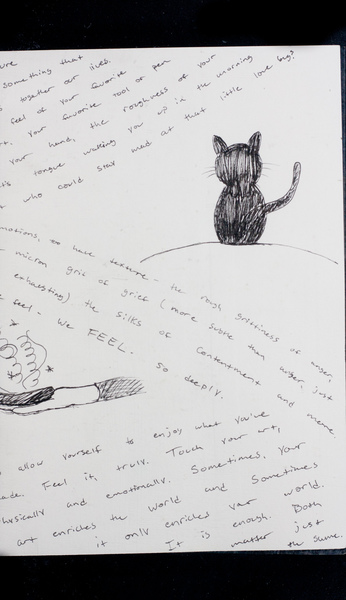 something that
together our lives.
feel of your favorite
your favorite tool or pen
your hand, the roughness of your
tongue waking you up in the morning
who could stay mad at that little love bug?
emotions, too have texture - the rough grittiness of anger,
micron grit of grief (more subtle than anger, just
exhausting) the silks of contentment and
feel - we FEEL. so deeply.
allow yourself to enjoy what you've
made. Feel it, truly. Touch your art,
physically and emotionally. Sometimes, your
art enriches the world and sometimes
it only enriches your world.
It is enough. Both
matter just
the same.